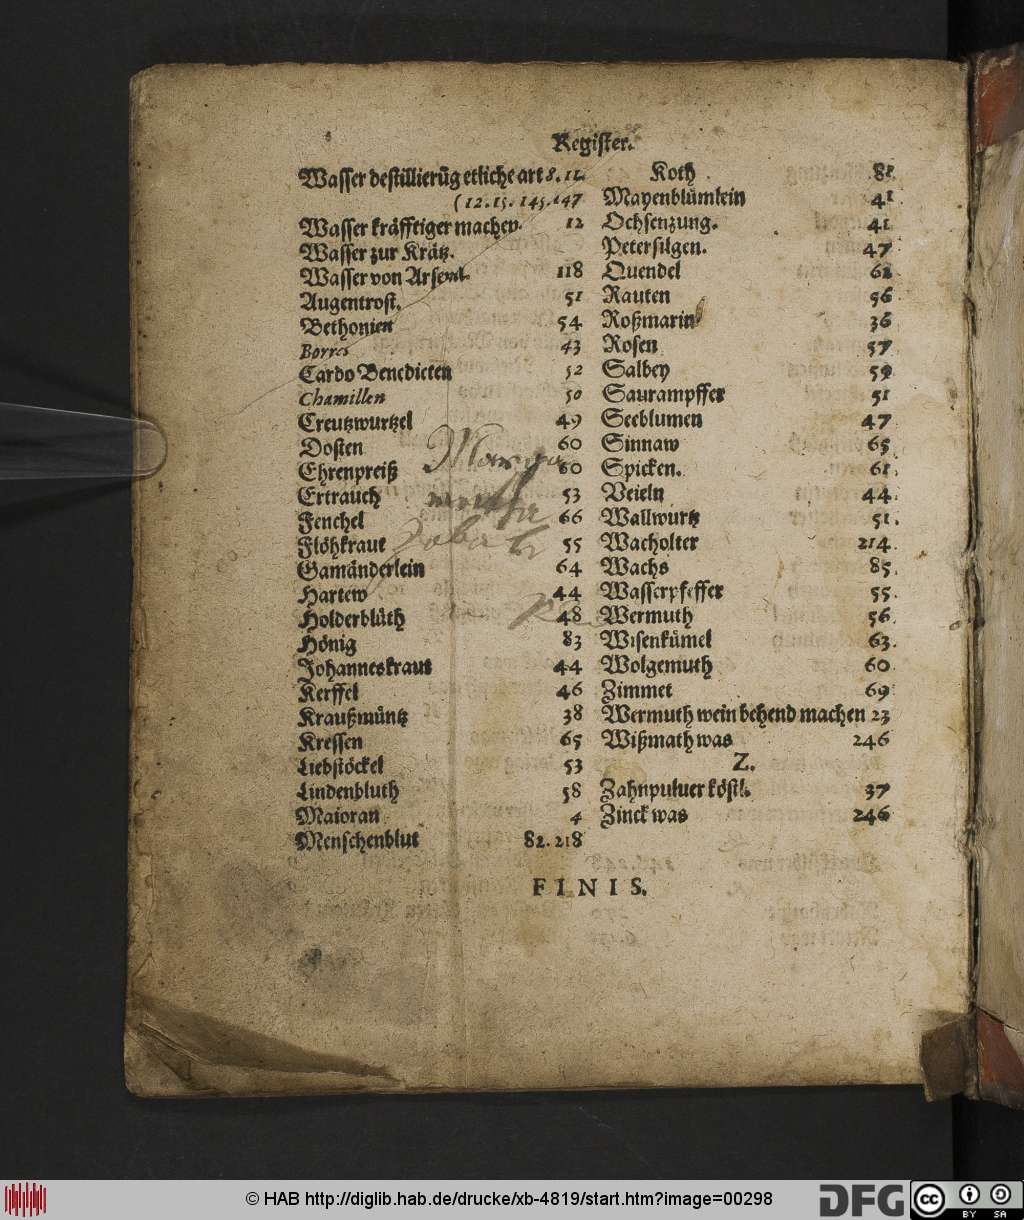 Register.
Wasser destillierūg etliche art 8. 11.
(12. 15. 145. 147
Wasser kräfftiger machen. 12
Wasser zur Krätz.
Wasser von Arsenal. 118
Augentrost. 51
Bethonien 54
Borres 43
Cardo Benedicten 52
Chamillen 50
Creutzwurtzel 49
Dosten 60
Ehrenpreiß 60
Ertrauch 53
Fenchel 66
Flöhkraut 55
Gamänderlein 64
Hartew 44
Holderblüth 48
Hönig 83
Johanneskraut 44
Kerffel 46
Kraußmüntz 38
Kressen 65
Liebstöckel 53
Lindenbluth 58
Maioran 4
Menschenblut 82. 218
Koth 81
Mayenblümlein 41
Ochsenzung. 41
Petersilgen. 47
Quendel 62
Rauten 56
Roßmarin 36
Rosen 57
Salbey 59
Saurampffer 51
Seeblumen 47
Sinnaw 65
Spicken. 61
Veieln 44
Wallwurtz 51.
Wacholter 214
Wachs 85.
Wasserpfeffer 55.
Wermuth 56
Wisenkümel 63.
Wolgemuth 60
Zimmet 69
Wermuth wein behend machen 23
Wißmath was 246
Z.
Zahnpuluer köstl. 37
Zinck was 246
FINIS.
Marga
© HAB http://diglib.hab.de/drucke/xb-4819/start.htm?image=00298
DFG
cc BY SA